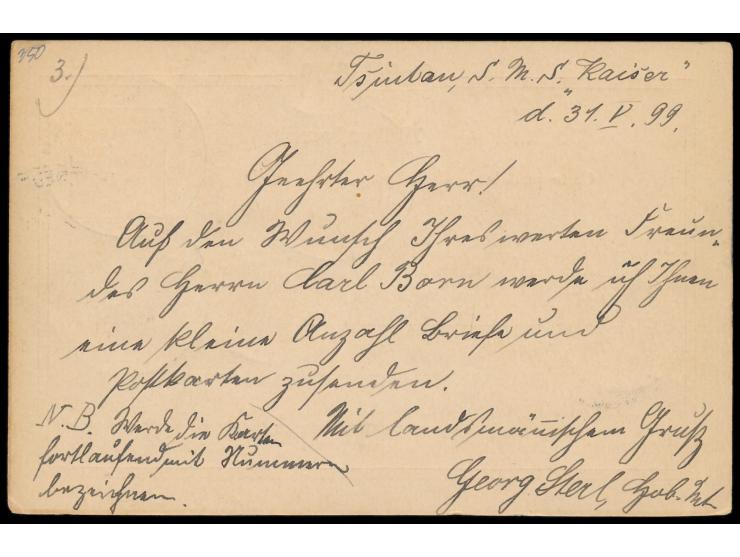 350
3.)
Tsintau, S. M. S. "Kaiser"
d. 31. V. 99.
Geehrter Herr!
Auf den Wunsch Ihres werten Freun-
des Herrn Carl Born werde ich Ihnen
eine kleine Anzahl Briefe und
Postkarten zusenden.
Mit landsmännischem Gruß
Georg Sterl,
N. B. Werde die Karten
fortlaufend mit Nummern
bezeichnen.